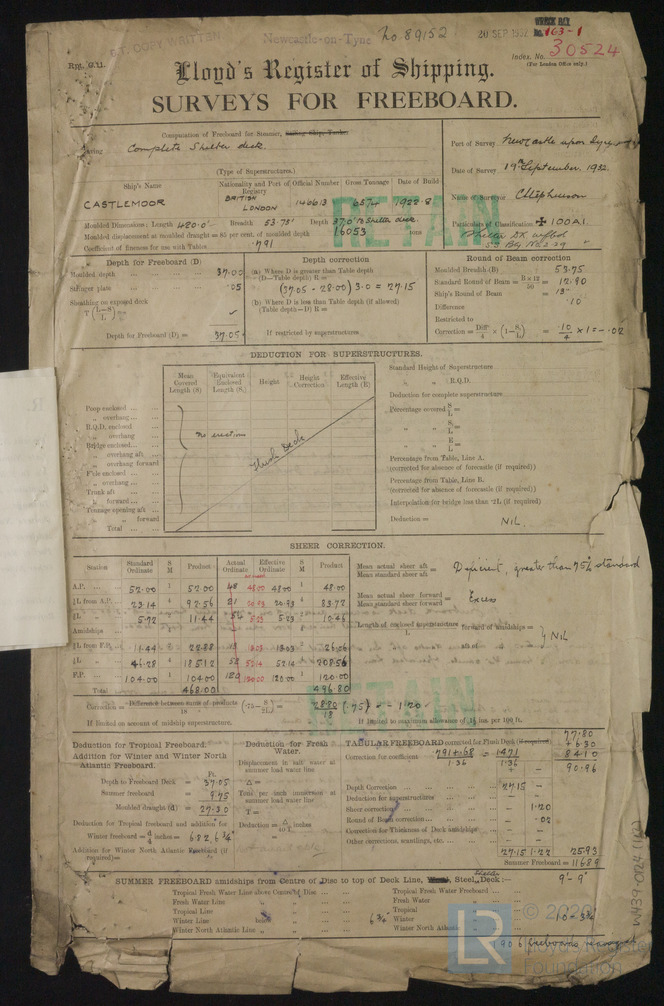 D.T. COPY WRITTEN
Newcastle-on-Tyne No. 89152
20 SEP 1932
WRECK BOX
No. 163-1
Index. No. 30524
(For London Office only.)
Lloyd's Register of Shipping.
SURVEYS FOR FREEBOARD.
Computation of Freeboard for Steamer, Sailing Ship, Tanker
having Complete Shelter deck.
(Type of Superstructures.)
Port of Survey Newcastle upon Tyne
Date of Survey 19th September 1932.
Name of Surveyor C Stephenson
Particulars of Classification ✠ 100A1.
Ship's Name
Nationality and Port of Registry
Official Number
Gross Tonnage
Date of Build
CASTLEMOOR
BRITISH
LONDON
146613
6574
1922-8
Moulded Dimensions: Length 420.0' Breadth 53.75' Depth 37.0' to Shelter deck
Moulded displacement at moulded draught = 85 per cent. of moulded depth 16053 tons
Coefficient of fineness for use with Tables .791
RETAIN
Depth for Freeboard (D)
Moulded depth 37.00
Stringer plate .05
Sheathing on exposed deck
T (L-S / L) =
Depth for Freeboard (D) = 37.05
Depth correction
(a) Where D is greater than Table depth
(D—Table depth) R =
(37.05 - 28.00) 3.0 = 27.15
(b) Where D is less than Table depth (if allowed)
(Table depth—D) R =
If restricted by superstructures
Round of Beam correction
Moulded Breadth (B) 53.75
Standard Round of Beam = B × 12 / 50 = 12.90
Ship's Round of Beam = 13"
Difference .10
Restricted to
Correction = Diff / 4 × (1 - S₁ / L) = .10 / 4 × 1 = -.02
DEDUCTION FOR SUPERSTRUCTURES.
Mean Covered Length (S)
Equivalent Enclosed Length (S₁)
Height
Height Correction
Effective Length (E)
Poop enclosed
" overhang
R.Q.D. enclosed
" overhang
Bridge enclosed
" overhang aft
" overhang forward
F'cle enclosed
" overhang
Trunk aft
" forward
Tonnage opening aft
" forward
Total
no erections
Flush Deck
Standard Height of Superstructure
" " R.Q.D.
Deduction for complete superstructure
Percentage covered S / L =
" " S₁ / L =
" " E / L =
Percentage from Table, Line A.
(corrected for absence of forecastle (if required))
Percentage from Table, Line B.
(corrected for absence of forecastle (if required))
Interpolation for bridge less than ·2L (if required)
Deduction = NIL.
SHEER CORRECTION.
Station
Standard Ordinate
S M
Product
Actual Ordinate
Effective Ordinate
S M
Product
A.P. 52.00 1 52.00 48 48.00 48.00 1 48.00
¼L from A.P. 23.14 4 92.56 21 20.93 20.93 4 83.72
½L 5.72 2 11.44 5¼ 5.23 5.23 2 10.46
Amidships
½L from F.P. 11.44 2 22.88 13 13.03 13.03 2 26.06
¼L 46.28 4 185.12 52 52.14 52.14 4 208.56
F.P. 104.00 1 104.00 120 120.00 120.00 1 120.00
Total 468.00 496.80
Mean actual sheer aft / Mean standard sheer aft = Deficient, greater than 75% standard
Mean actual sheer forward / Mean standard sheer forward = Excess
Length of enclosed superstructure forward of amidships = / L
} NIL
Correction = Difference between sums of products / 18 (·75 - S / 2L) = 28.80 / 18 (.75) = - 1.20
If limited on account of midship superstructure.
If limited to maximum allowance of 1½ ins. per 100 ft.
RETAIN
Deduction for Tropical Freeboard.
Addition for Winter and Winter North Atlantic Freeboard.
Ft.
Depth to Freeboard Deck = 37.05
Summer freeboard = 9.75
Moulded draught (d) = 27.30
Deduction for Tropical freeboard and addition for
Winter freeboard = d / 4 inches = 6.82, 6¾"
Addition for Winter North Atlantic Freeboard (if required) =
Deduction for Fresh Water.
Displacement in salt water at summer load water line
Δ =
Tons per inch immersion at summer load water line
T =
Deduction = Δ / 40T inches
=
TABULAR FREEBOARD corrected for Flush Deck (if required)
Correction for coefficient .791 + .68 / 1.36 = 1.471 / 1.36
77.80
+ 6.30
84.10
90.96
+ -
Depth Correction 27.15 -
Deduction for superstructures
Sheer correction - 1.20
Round of Beam correction - .02
Correction for Thickness of Deck amidships - -
Other corrections, scantlings, etc. - -
27.15 1.22 25.93
Summer Freeboard = 116.89
SUMMER FREEBOARD amidships from Centre of Disc to top of Deck Line, Wood, Steel, Shelter Deck:— 9'- 9"
Tropical Fresh Water Line above Centre of Disc
Fresh Water Line "
Tropical Line "
Winter Line below " 6¾"
Winter North Atlantic Line " "
Tropical Fresh Water Freeboard
Fresh Water "
Tropical "
Winter " 10 - 3¾
Winter North Atlantic "
1906 freeboards reassigned
W439-0124 (1/2)
LR
© 2020
Lloyd's Register
Foundation